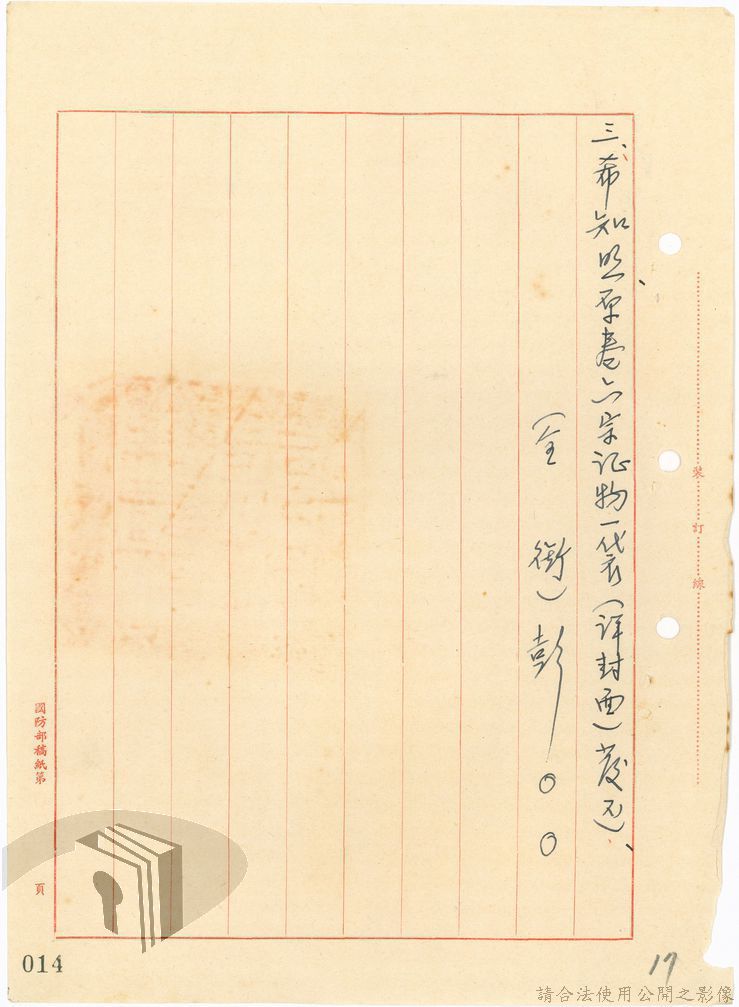 三、希知照原卷六宗证物一袋(详封面)发还、
(全 銜)彭○○
裝 訂 線
國防部稿紙第 頁
014
17
請合法使用公開之影像